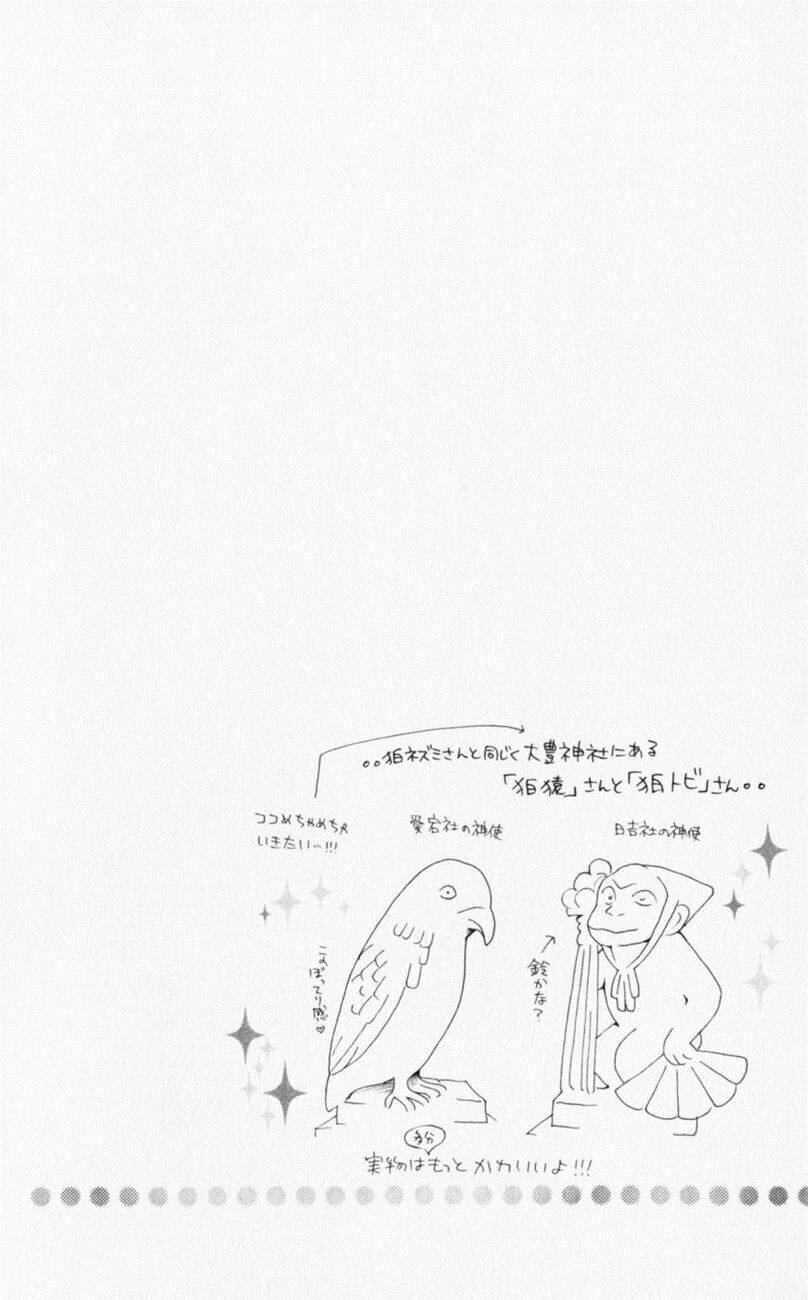 。。狛ネズミさんと同じく大豊神社にある
「狛猿」さんと「狛トビ」さん。。
ココめちゃめちゃ
いきたい…!!!
愛宕社の神使
日吉社の神使
このぽってり感♡
鈴かな?
多分
実物はもっとかわいいよ!!!